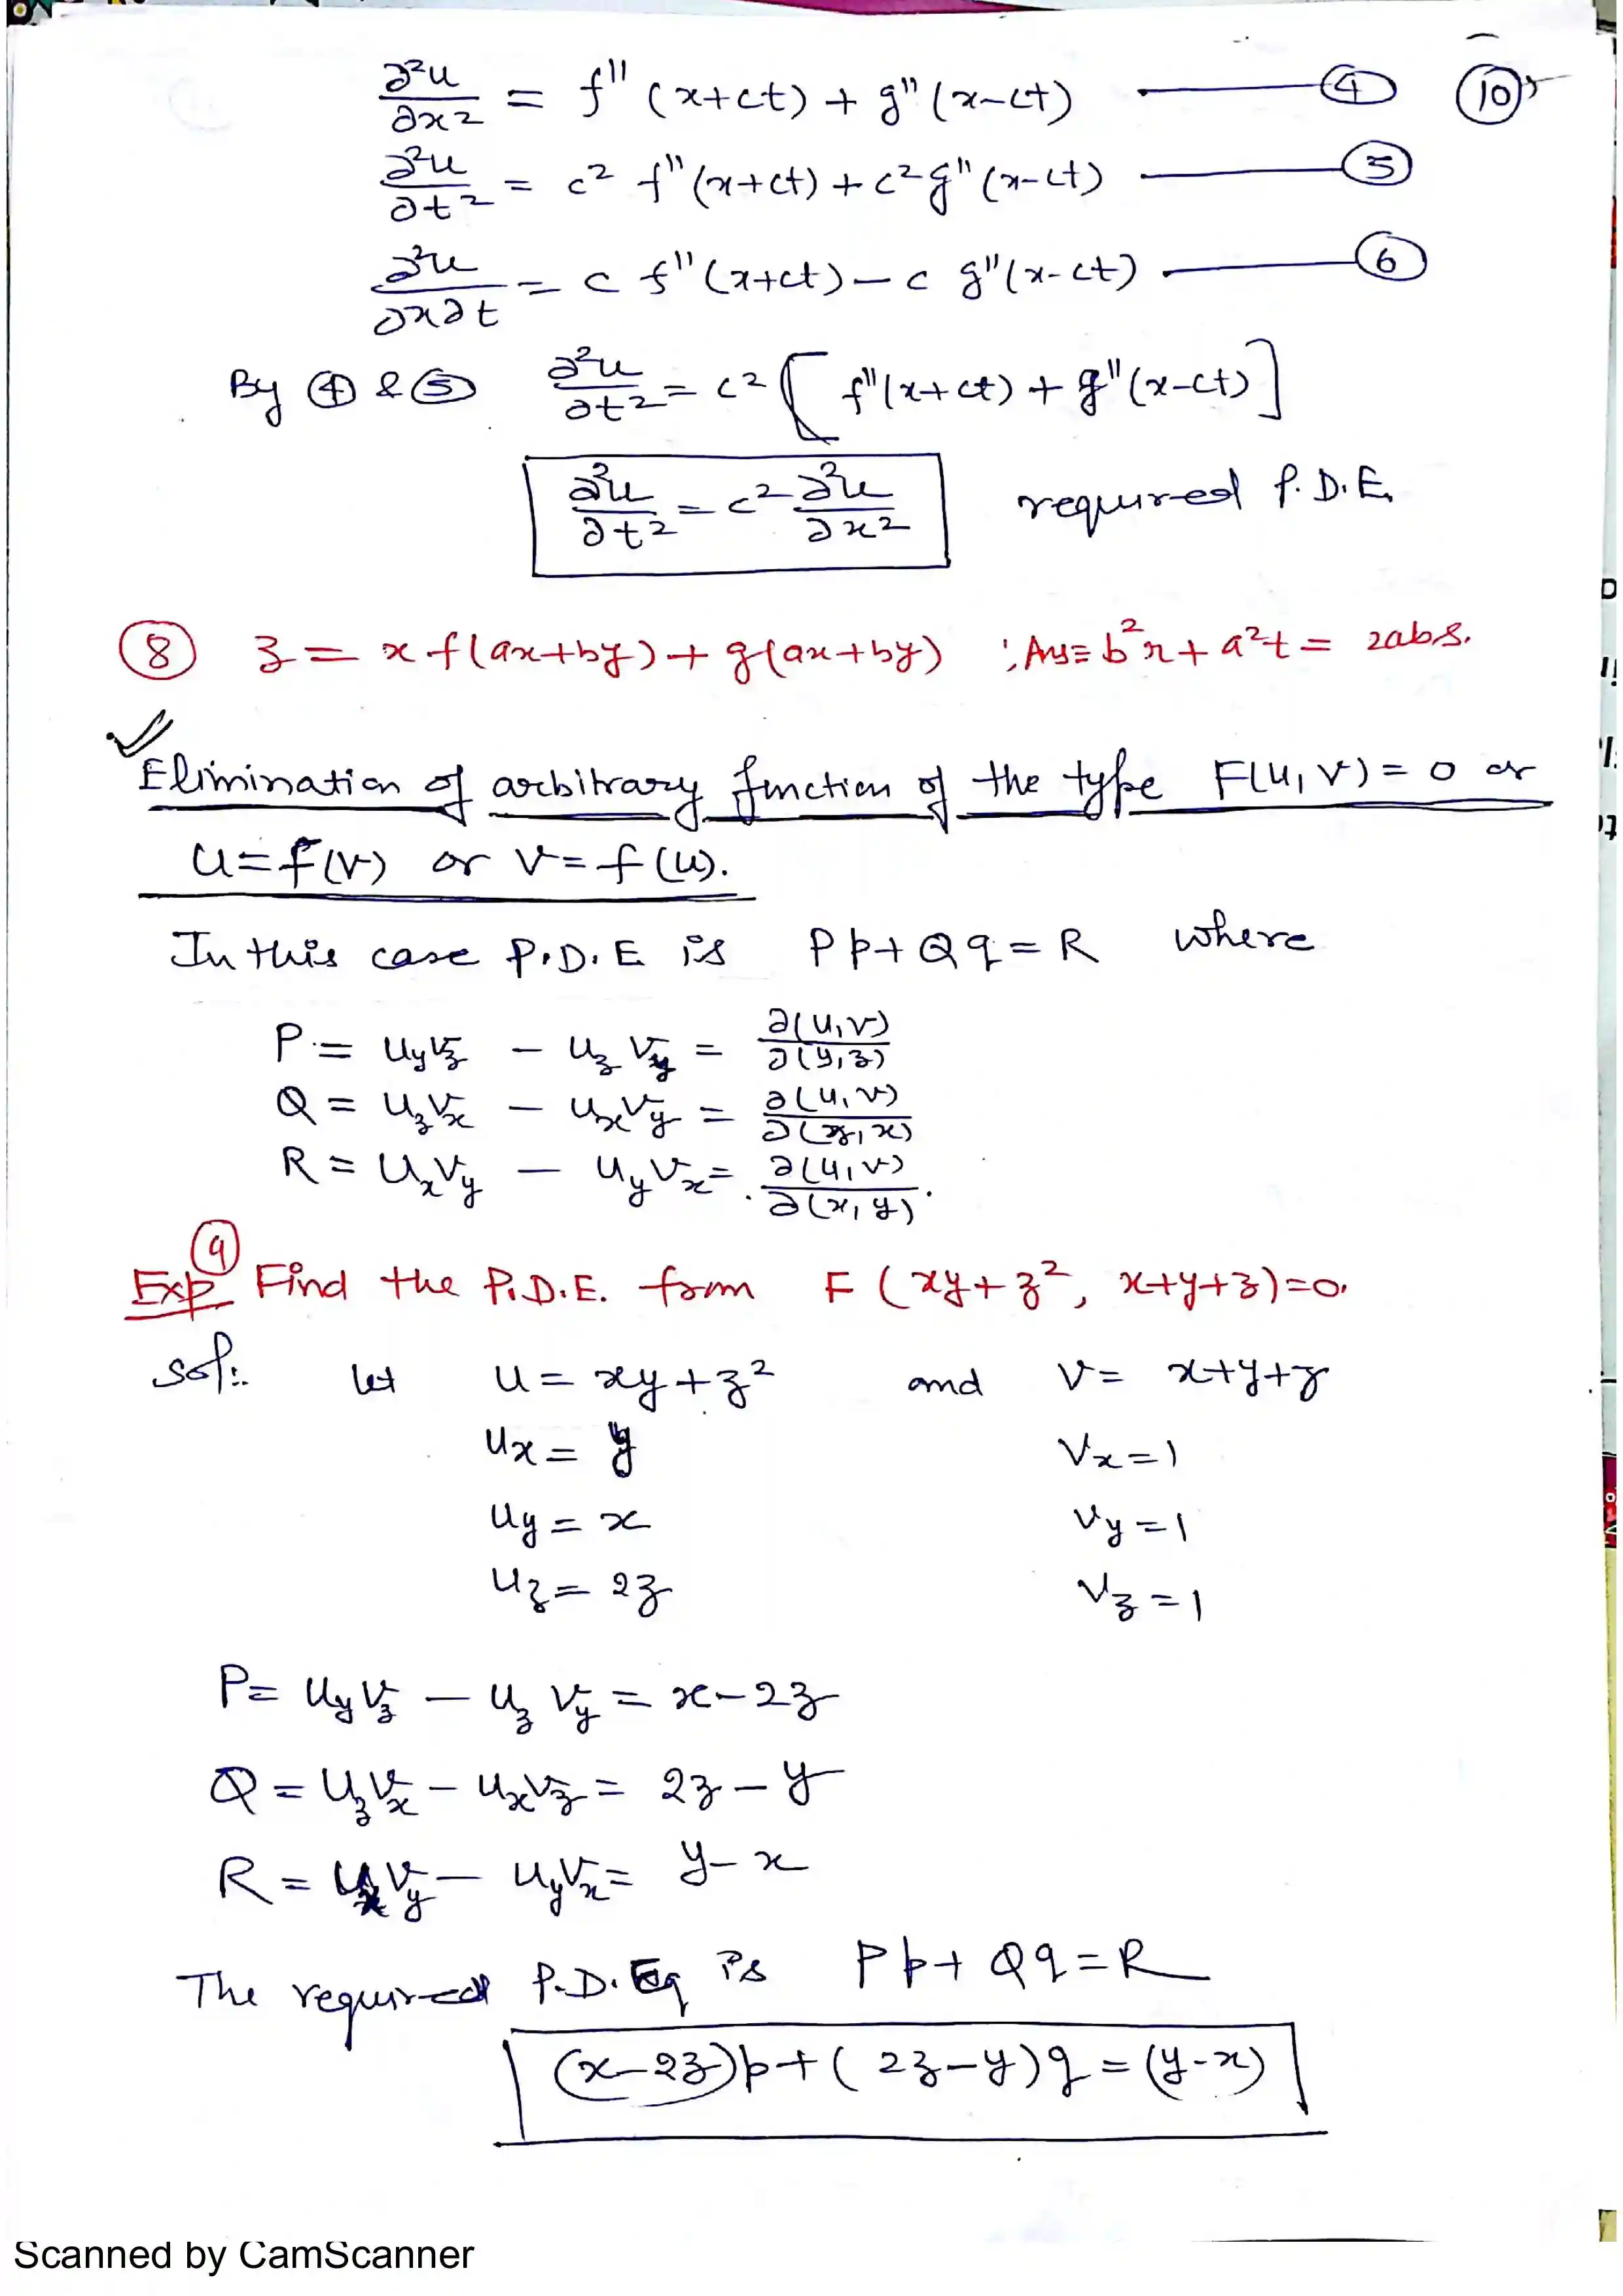 ∂²u/∂x² = f''(x+ct) + g''(x-ct) ——— ④ ⑩
∂²u/∂t² = c² f''(x+ct) + c² g''(x-ct) ——— ⑤
∂²u/∂x∂t = c f''(x+ct) - c g''(x-ct) ——— ⑥
By ④ & ⑤ ∂²u/∂t² = c² [f''(x+ct) + g''(x-ct)]
∂²u/∂t² = c² ∂²u/∂x² required P.D.E.
⑧ z = x f(ax+by) + g(ax+by) ; Ans = b²r + a²t = 2abs.
Elimination of arbitrary function of the type F(u,v) = 0 or
u = f(v) or v = f(u).
In this case P.D.E is Pp + Qq = R where
P = u_y v_z - u_z v_y = ∂(u,v)/∂(y,z)
Q = u_z v_x - u_x v_y = ∂(u,v)/∂(z,x)
R = u_x v_y - u_y v_x = ∂(u,v)/∂(x,y).
Exp ⑨ Find the P.D.E. from F(xy+z², x+y+z)=0.
Sol:. let u = xy+z² and v = x+y+z
u_x = y v_x = 1
u_y = x v_y = 1
u_z = 2z v_z = 1
P = u_y v_z - u_z v_y = x-2z
Q = u_z v_x - u_x v_z = 2z-y
R = u_x v_y - u_y v_x = y-x
The required P.D.Eq is Pp + Qq = R
(x-2z)p + (2z-y)q = (y-x)
Scanned by CamScanner